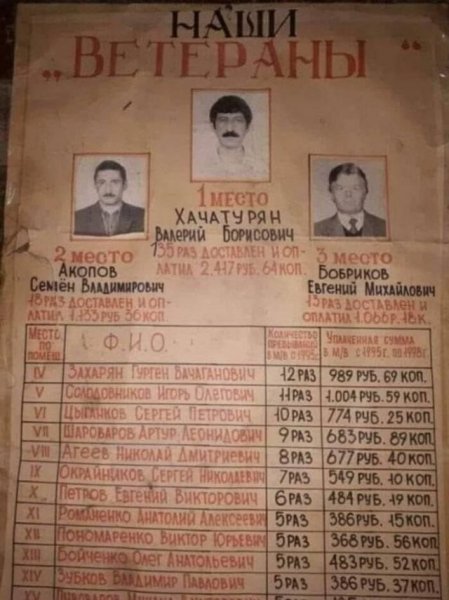 НАШИ
„ВЕТЕРАНЫ“
1 МЕСТО
ХАЧАТУРЯН
ВАЛЕРИЙ БОРИСОВИЧ
35 РАЗ ДОСТАВЛЕН И ОП-
ЛАТИЛ 2.417 РУБ. 64 КОП.
2 МЕСТО
АКОПОВ
СЕМЁН ВЛАДИМИРОВИЧ
18 РАЗ ДОСТАВЛЕН И ОП-
ЛАТИЛ 1.133 РУБ 36 КОП.
3 МЕСТО
БОБРИКОВ
ЕВГЕНИЙ МИХАЙЛОВИЧ
13 РАЗ ДОСТАВЛЕН И
ОПЛАТИЛ 1.066 Р. 18 К.
МЕСТО ПО ПОМЕЩ. Ф.И.О. КОЛИЧЕСТВО ПРЕБЫВАНИЙ В М/В С 1995г. УПЛАЧЕННАЯ СУММА В М/В С 1995г. ПО 1998г.
IV ЗАХАРЯН ГУРГЕН ВАЧАГАНОВИЧ 12 РАЗ 989 РУБ. 69 КОП.
V СОЛОДОВНИКОВ ИГОРЬ ОЛЕГОВИЧ 11 РАЗ 1.004 РУБ. 59 КОП.
VI ЦЫГАНКОВ СЕРГЕЙ ПЕТРОВИЧ 10 РАЗ 774 РУБ. 25 КОП.
VII ШАРОВАРОВ АРТУР ЛЕОНИДОВИЧ 9 РАЗ 683 РУБ. 89 КОП.
VIII АГЕЕВ НИКОЛАЙ ДМИТРИЕВИЧ 8 РАЗ 677 РУБ. 40 КОП.
IX ОКРАЙНИКОВ СЕРГЕЙ НИКОЛАЕВИЧ 7 РАЗ 549 РУБ. 10 КОП.
X ПЕТРОВ ЕВГЕНИЙ ВИКТОРОВИЧ 6 РАЗ 484 РУБ. 19 КОП.
XI РОМАНЕНКО АНАТОЛИЙ АЛЕКСЕЕВИЧ 5 РАЗ 386 РУБ. 15 КОП.
XII ПОНОМАРЕНКО ВИКТОР ЮРЬЕВИЧ 5 РАЗ 368 РУБ. 56 КОП.
XIII БОЙЧЕНКО ОЛЕГ АНАТОЛЬЕВИЧ 5 РАЗ 483 РУБ. 52 КОП.
XIV ЗУБКОВ ВЛАДИМИР ПАВЛОВИЧ 5 РАЗ 386 РУБ. 37 КОП.
XV